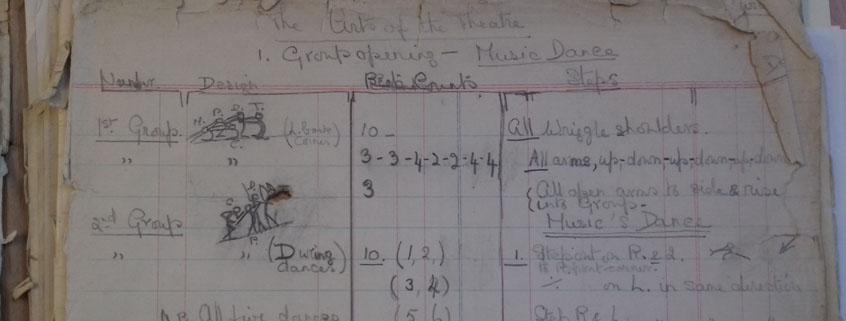 The Arts of the Theatre
1. Group opening - Music Dance
Number Design Counts Steps
1st Group (L. Corner) 10 - All wriggle shoulders.
" " 3-3-4-2-2-4-4 All arms, up-down-up-down-up-down
3 { All open arms to side & rise
into Group.
2nd Group Music's Dance
" " (During dances) 10. (1, 2,) 1. Step out on R. & 2.
(3, 4) on L. in same direction
All five dances (5, 6) Step R & L